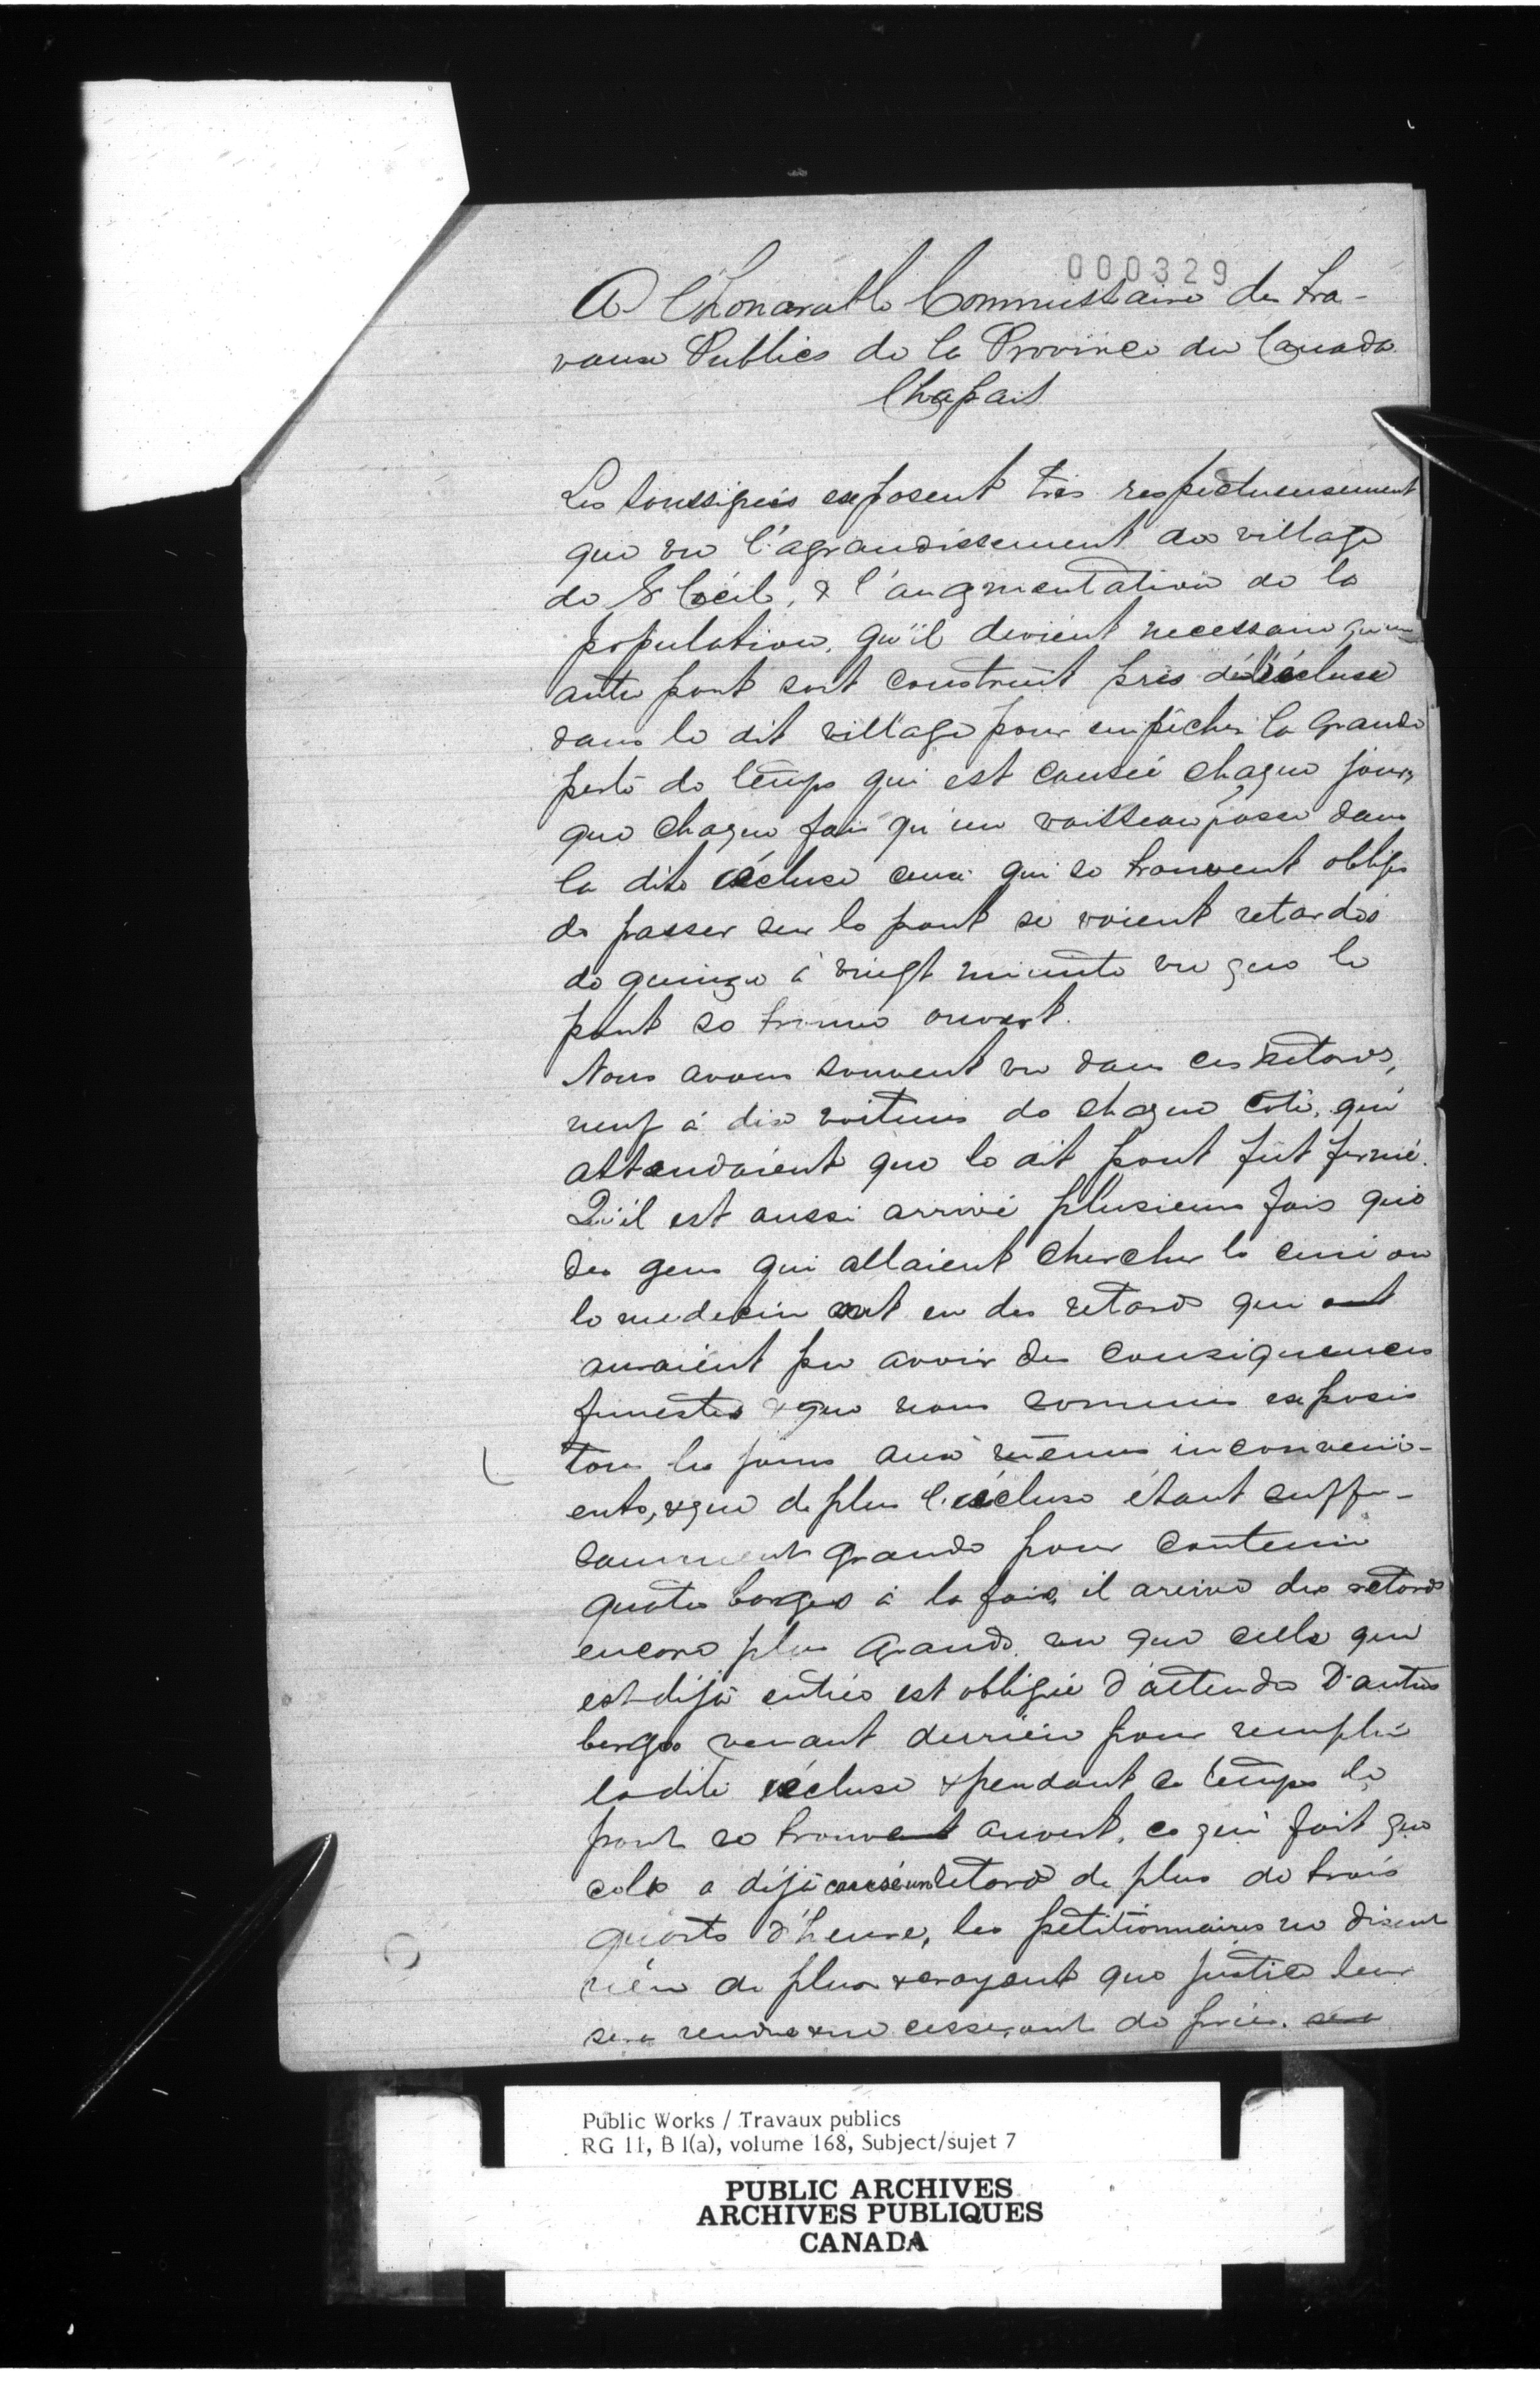 000329
A l'honorable Commissaire des tra-
vaux Publics de la Province du Canada
Chapais
Les soussignés exposent très respectueusement
que vu l'agrandissement du village
de St Cécile, & l'augmentation de la
population, qu'il devient necessaire qu'un
autre pont soit construit près de l'écluse
dans le dit village pour empêcher la grande
perte de temps qui est causée chaque jour,
que chaque fois qu'un vaisseau passe dans
la dite écluse ceux qui se trouvent obligés
de passer sur le pont se voient retardés
de quinze à vingt minute vu que le
pont se trouve ouvert.
Nous avons souvent vu dans ces retards,
neuf à dix voitures de chaque coté, qui
attendaient que le dit pont fût fermé.
Qu'il est aussi arrivé plusieurs fois que
des gens qui allaient chercher le curé ou
le medecin ont eu des retards qui ont
auraient pu avoir des consequences
funestes & que nous sommes exposés
tous les jours aux mêmes inconveni-
ents, & que de plus l'écluse étant suffi-
samment grande pour contenir
quatre barges à la fois, il arrive des retards
encore plus grands, vu que celle qui
est déjà entrée est obligée d'attendre D'autres
barges venant derrière pour remplir
ladite écluse & pendant ce temps le
pont se trouvent ouvert, ce qui fait que
cela a déjà causé un retard de plus de trois
quarts d'heure, les pétitionnaires ne disent
rien de plus & croyent que justice leur
sera rendue & ne cesseront de prier. sera
Public Works / Travaux publics
RG 11, B 1(a), volume 168, Subject/sujet 7
PUBLIC ARCHIVES
ARCHIVES PUBLIQUES
CANADA